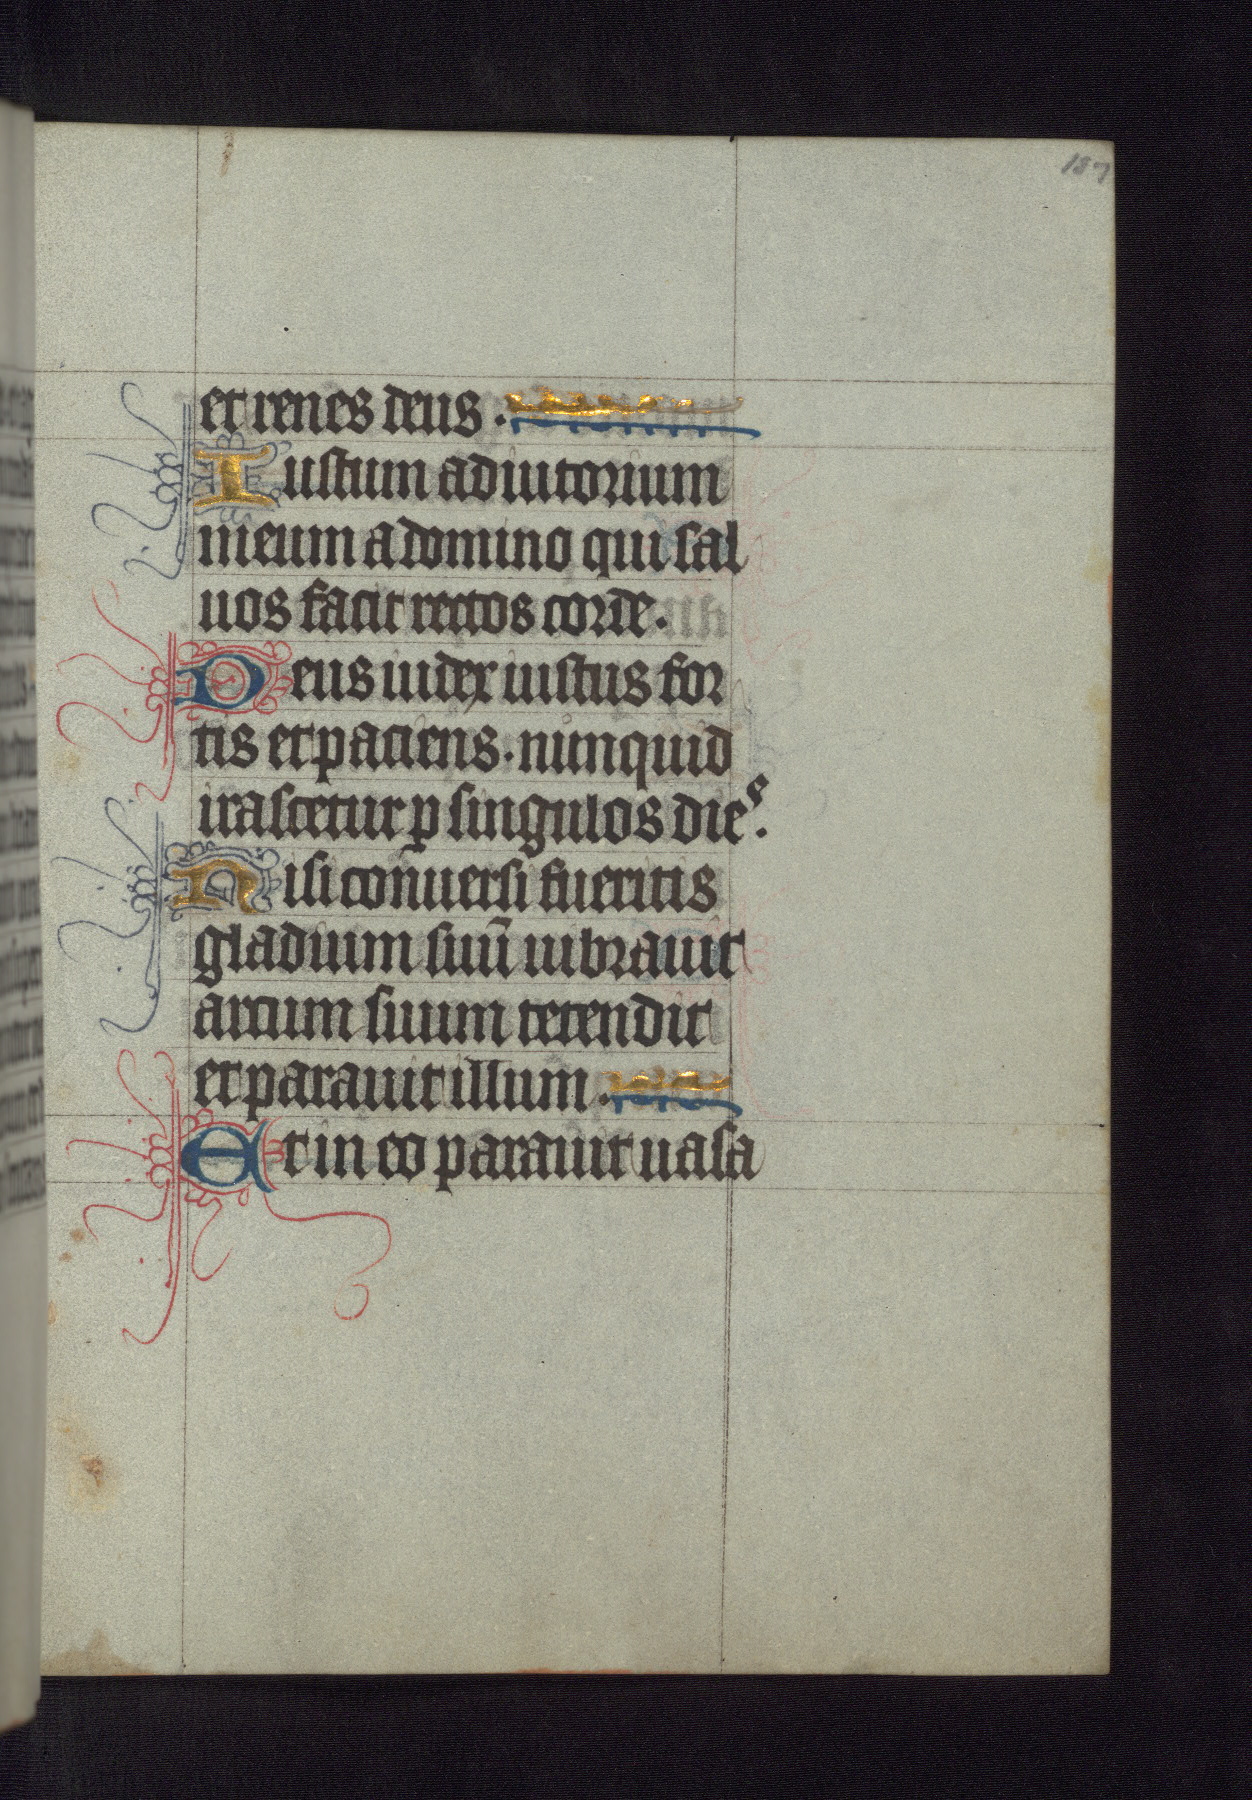 187
et renes deus.
Iustum adiutorium
meum a domino qui sal
uos facit rectos corde.
Deus iudex iustus for
tis et paciens. nunquid
irascetur p singulos dies.
Nisi conuersi fueritis
gladium suū uibrauit
arcum suum tetendit
et parauit illum.
Et in eo parauit uasa